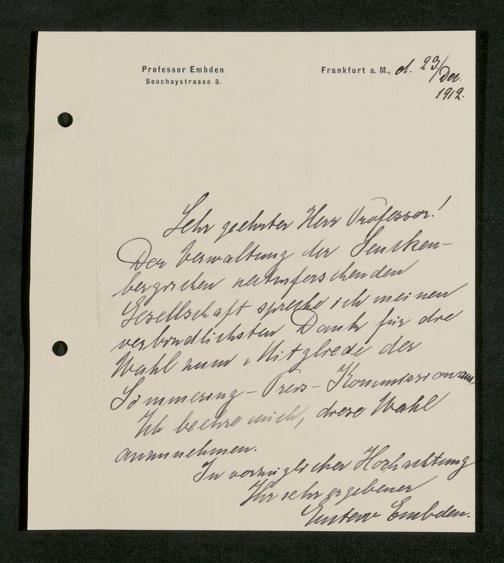 Professor Embden
Souchaystrasse 3.
Frankfurt a. M., d. 23/Dez.
1912.
Sehr geehrter Herr Professor!
Der Verwaltung der Sencken-
bergischen naturforschenden
Gesellschaft spreche ich meinen
verbindlichsten Dank für die
Wahl zum Mitgliede der
Sömmering-Preis-Kommission aus.
Ich beehre mich, diese Wahl
anzunehmen.
In vorzüglicher Hochachtung
Ihr sehr ergebener
Gustav Embden.